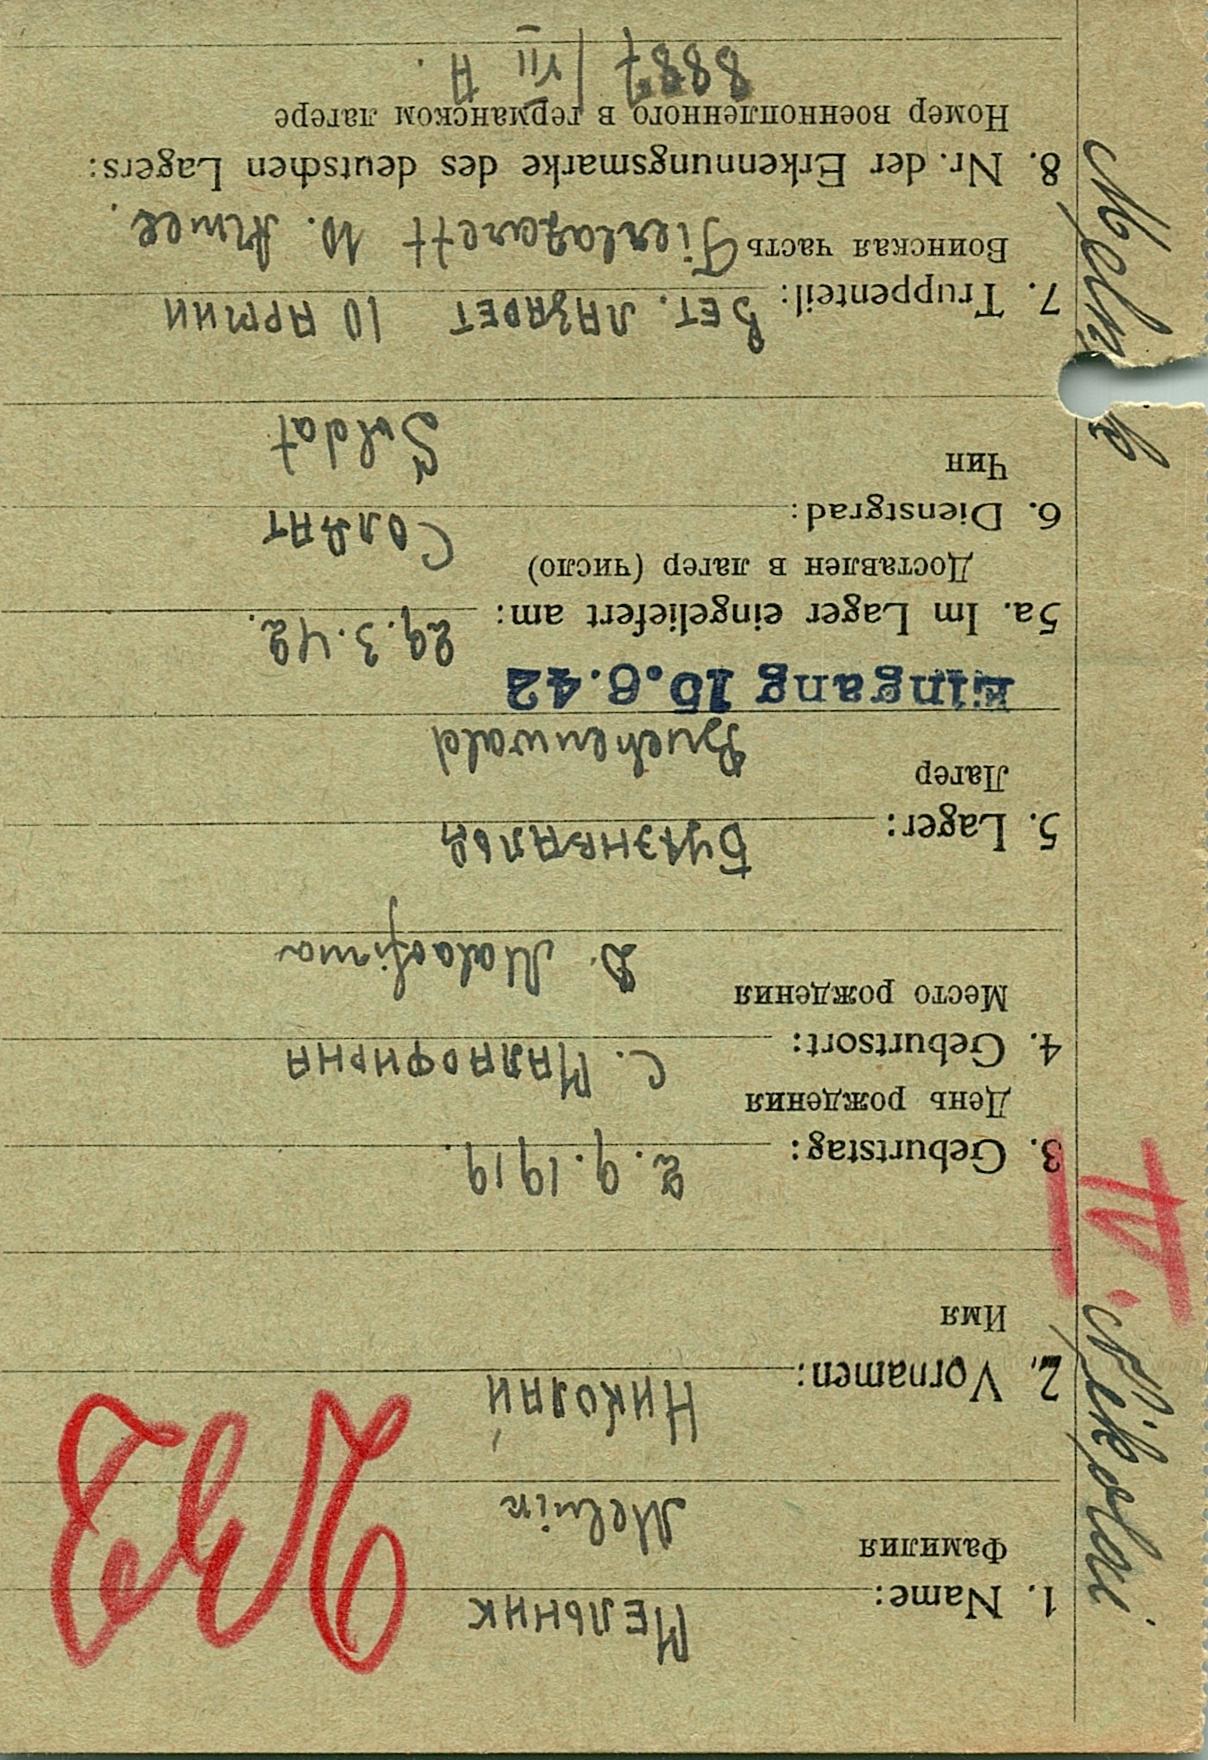 Мельник
1. Name:
Фамилия
Melnik
Николай
2. Vornamen:
Имя
2.9.1919.
3. Geburtstag:
День рождения
С. Малаофирна
4. Geburtsort:
Место рождения
D. Malaofirna
Бухэнвальд
5. Lager:
Лагер
Buchenwald
Eingang 15.6.42
29.3.42.
5a. Im Lager eingeliefert am:
Доставлен в лагер (число)
Солдат
6. Dienstgrad:
Чин
Soldat
Вет. лазарет 10 армии
7. Truppenteil:
Воинская часть Tierlazarett 10. Armee.
8. Nr. der Erkennungsmarke des deutschen Lagers:
Номер военнопленного в германском лагере
8887/VIII A.
Melnik
IV.
Nikolai